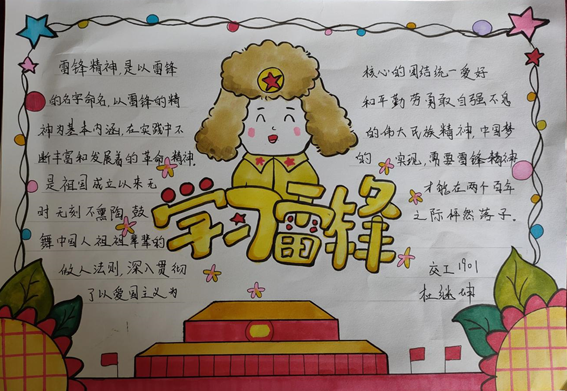 雷锋精神,是以雷锋
的名字命名,以雷锋的精
神为基本内涵,在实践中不
断丰富和发展着的革命精神.
是祖国成立以来无
时无刻不熏陶,鼓
舞中国人祖祖辈辈的
做人法则,深入贯彻
了以爱国主义为
学习雷锋
核心的团结统一爱好
和平勤劳勇敢自强不息
的伟大民族精神.中国梦
的实现,需要雷锋精神
才能在两个百年
之际怦然落子.
交工1901